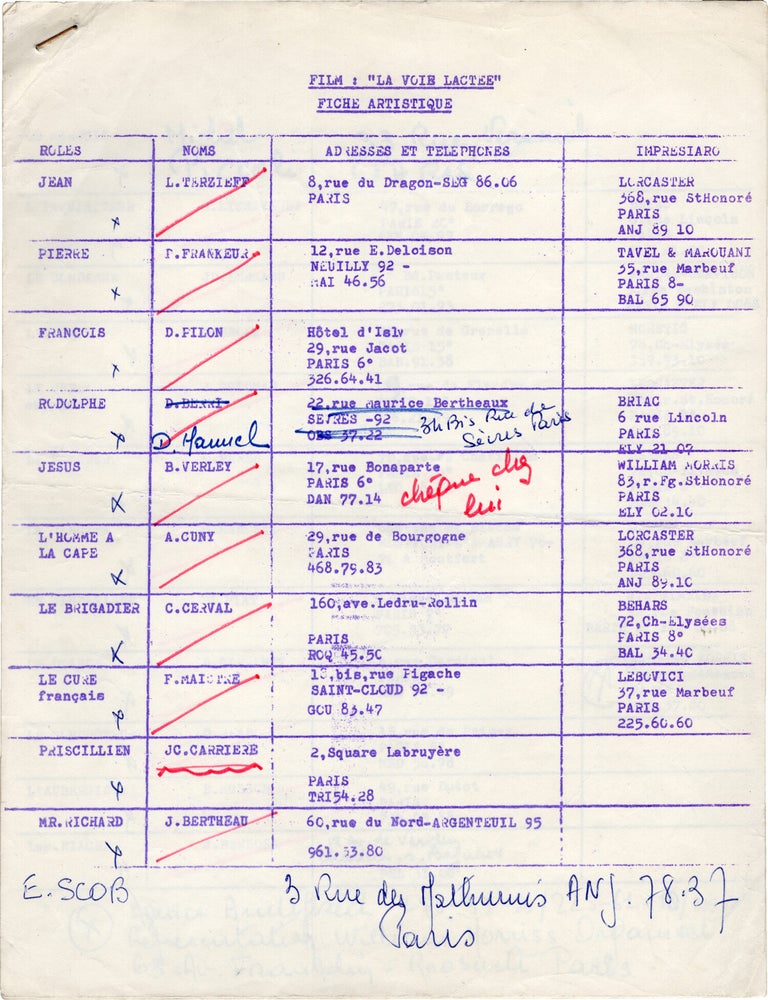 FILM : "LA VOIE LACTEE"
FICHE ARTISTIQUE
ROLES NOMS ADRESSES ET TELEPHONES IMPRESIARO
JEAN L.TERZIEFF 8,rue du Dragon-SEG 86.06 LORCASTER
PARIS 368,rue StHonoré
x PARIS
ANJ 89 10
PIERRE P.FRANKEUR 12,rue E.Deloison TAVEL & MAROUANI
NEUILLY 92 - 35,rue Marbeuf
x MAI 46.56 PARIS 8-
BAL 65 90
FRANCOIS D.PILON Hôtel d'Isly
29,rue Jacot
x PARIS 6°
326.64.41
RODOLPHE D.BERRI 22,rue Maurice Bertheaux BRIAC
SEVRES -92 34 Bis Rue de 6 rue Lincoln
x D. Manuel OBS 37.22 Sèvres Paris PARIS
ELY 21 07
JESUS B.VERLEY 17,rue Bonaparte WILLIAM MORRIS
PARIS 6° chèque chez 83,r.Fg.StHonoré
x DAN 77.14 lui PARIS
ELY 02.10
L'HOMME A A.CUNY 29,rue de Bourgogne LORCASTER
LA CAPE PARIS 368,rue StHonoré
x 468.79.83 PARIS
ANJ 89.10
LE BRIGADIER C.CERVAL 160,ave.Ledru-Rollin BEHARS
72,Ch-Elysées
PARIS PARIS 8°
x ROQ 45.50 BAL 34.40
LE CURE F.MAISTRE bis,rue Pigache LEBOVICI
français SAINT-CLOUD 92 - 37,rue Marbeuf
x GOU 83.47 PARIS
225.60.60
PRISCILLIEN JC.CARRIERE 2,Square Labruyère
PARIS
x TRI54.28
MR.RICHARD J.BERTHEAU 60,rue du Nord-ARGENTEUIL 95
x 961.33.80
E.SCOB 3 Rue des Mathurins ANJ. 78.37
Paris